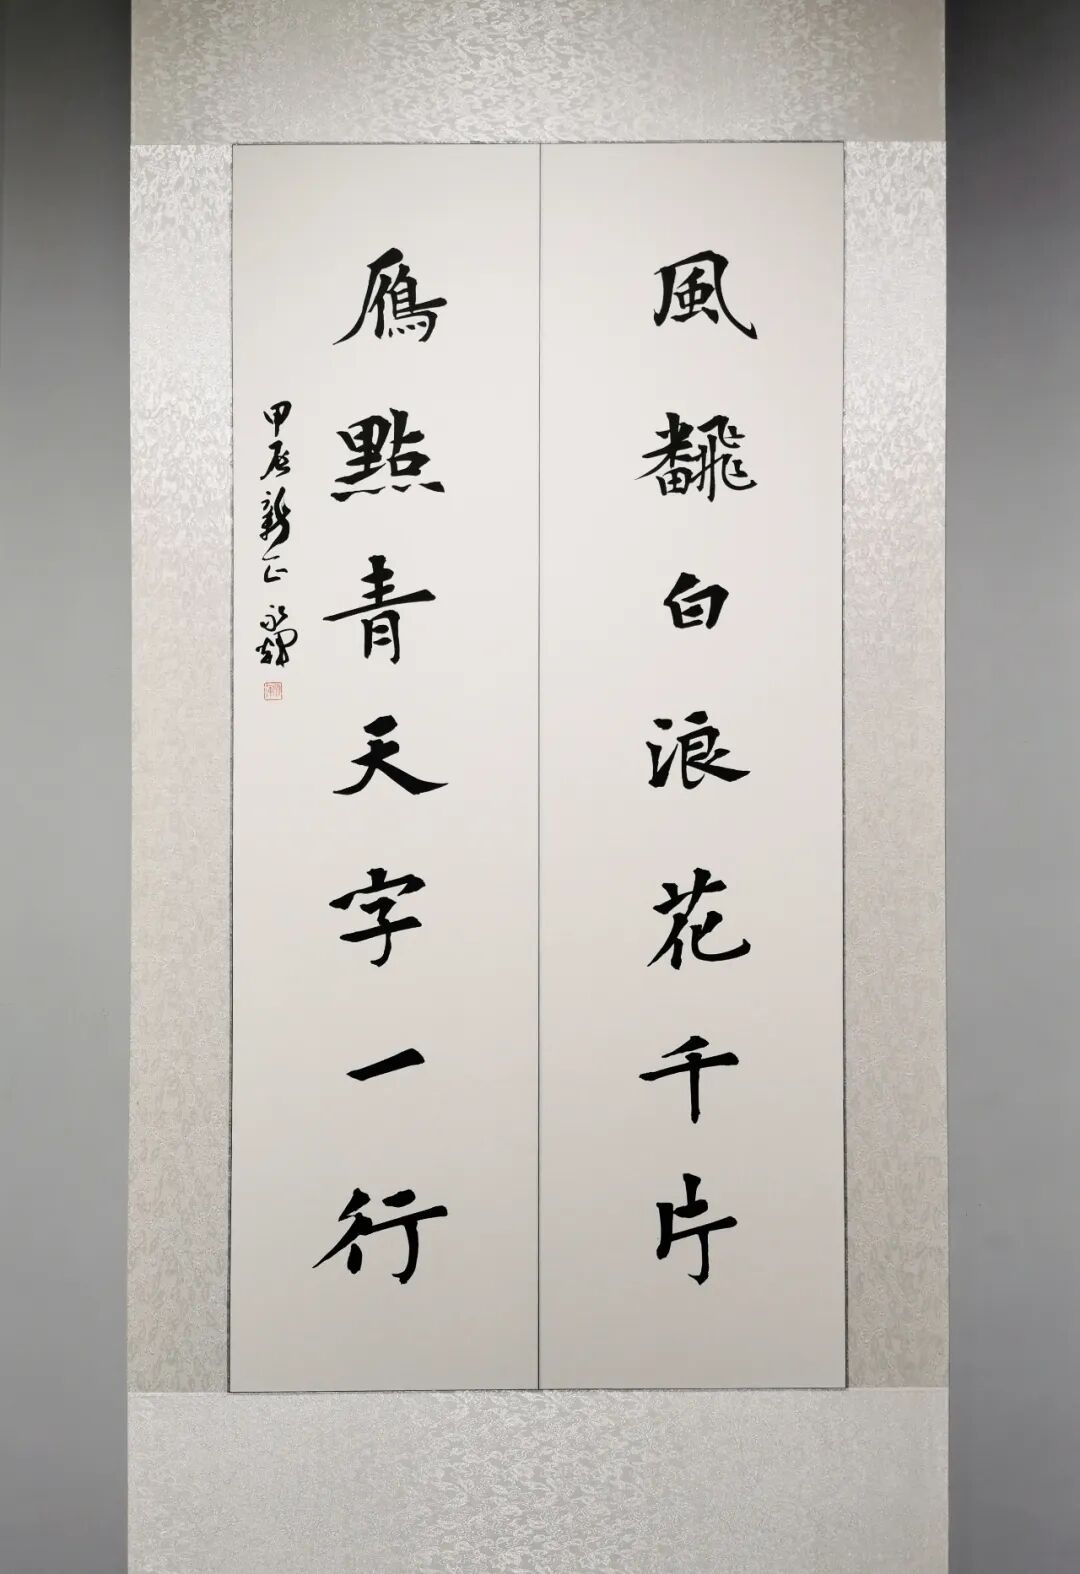 風飜白浪花千片
鴈點青天字一行
甲辰新正 永輝